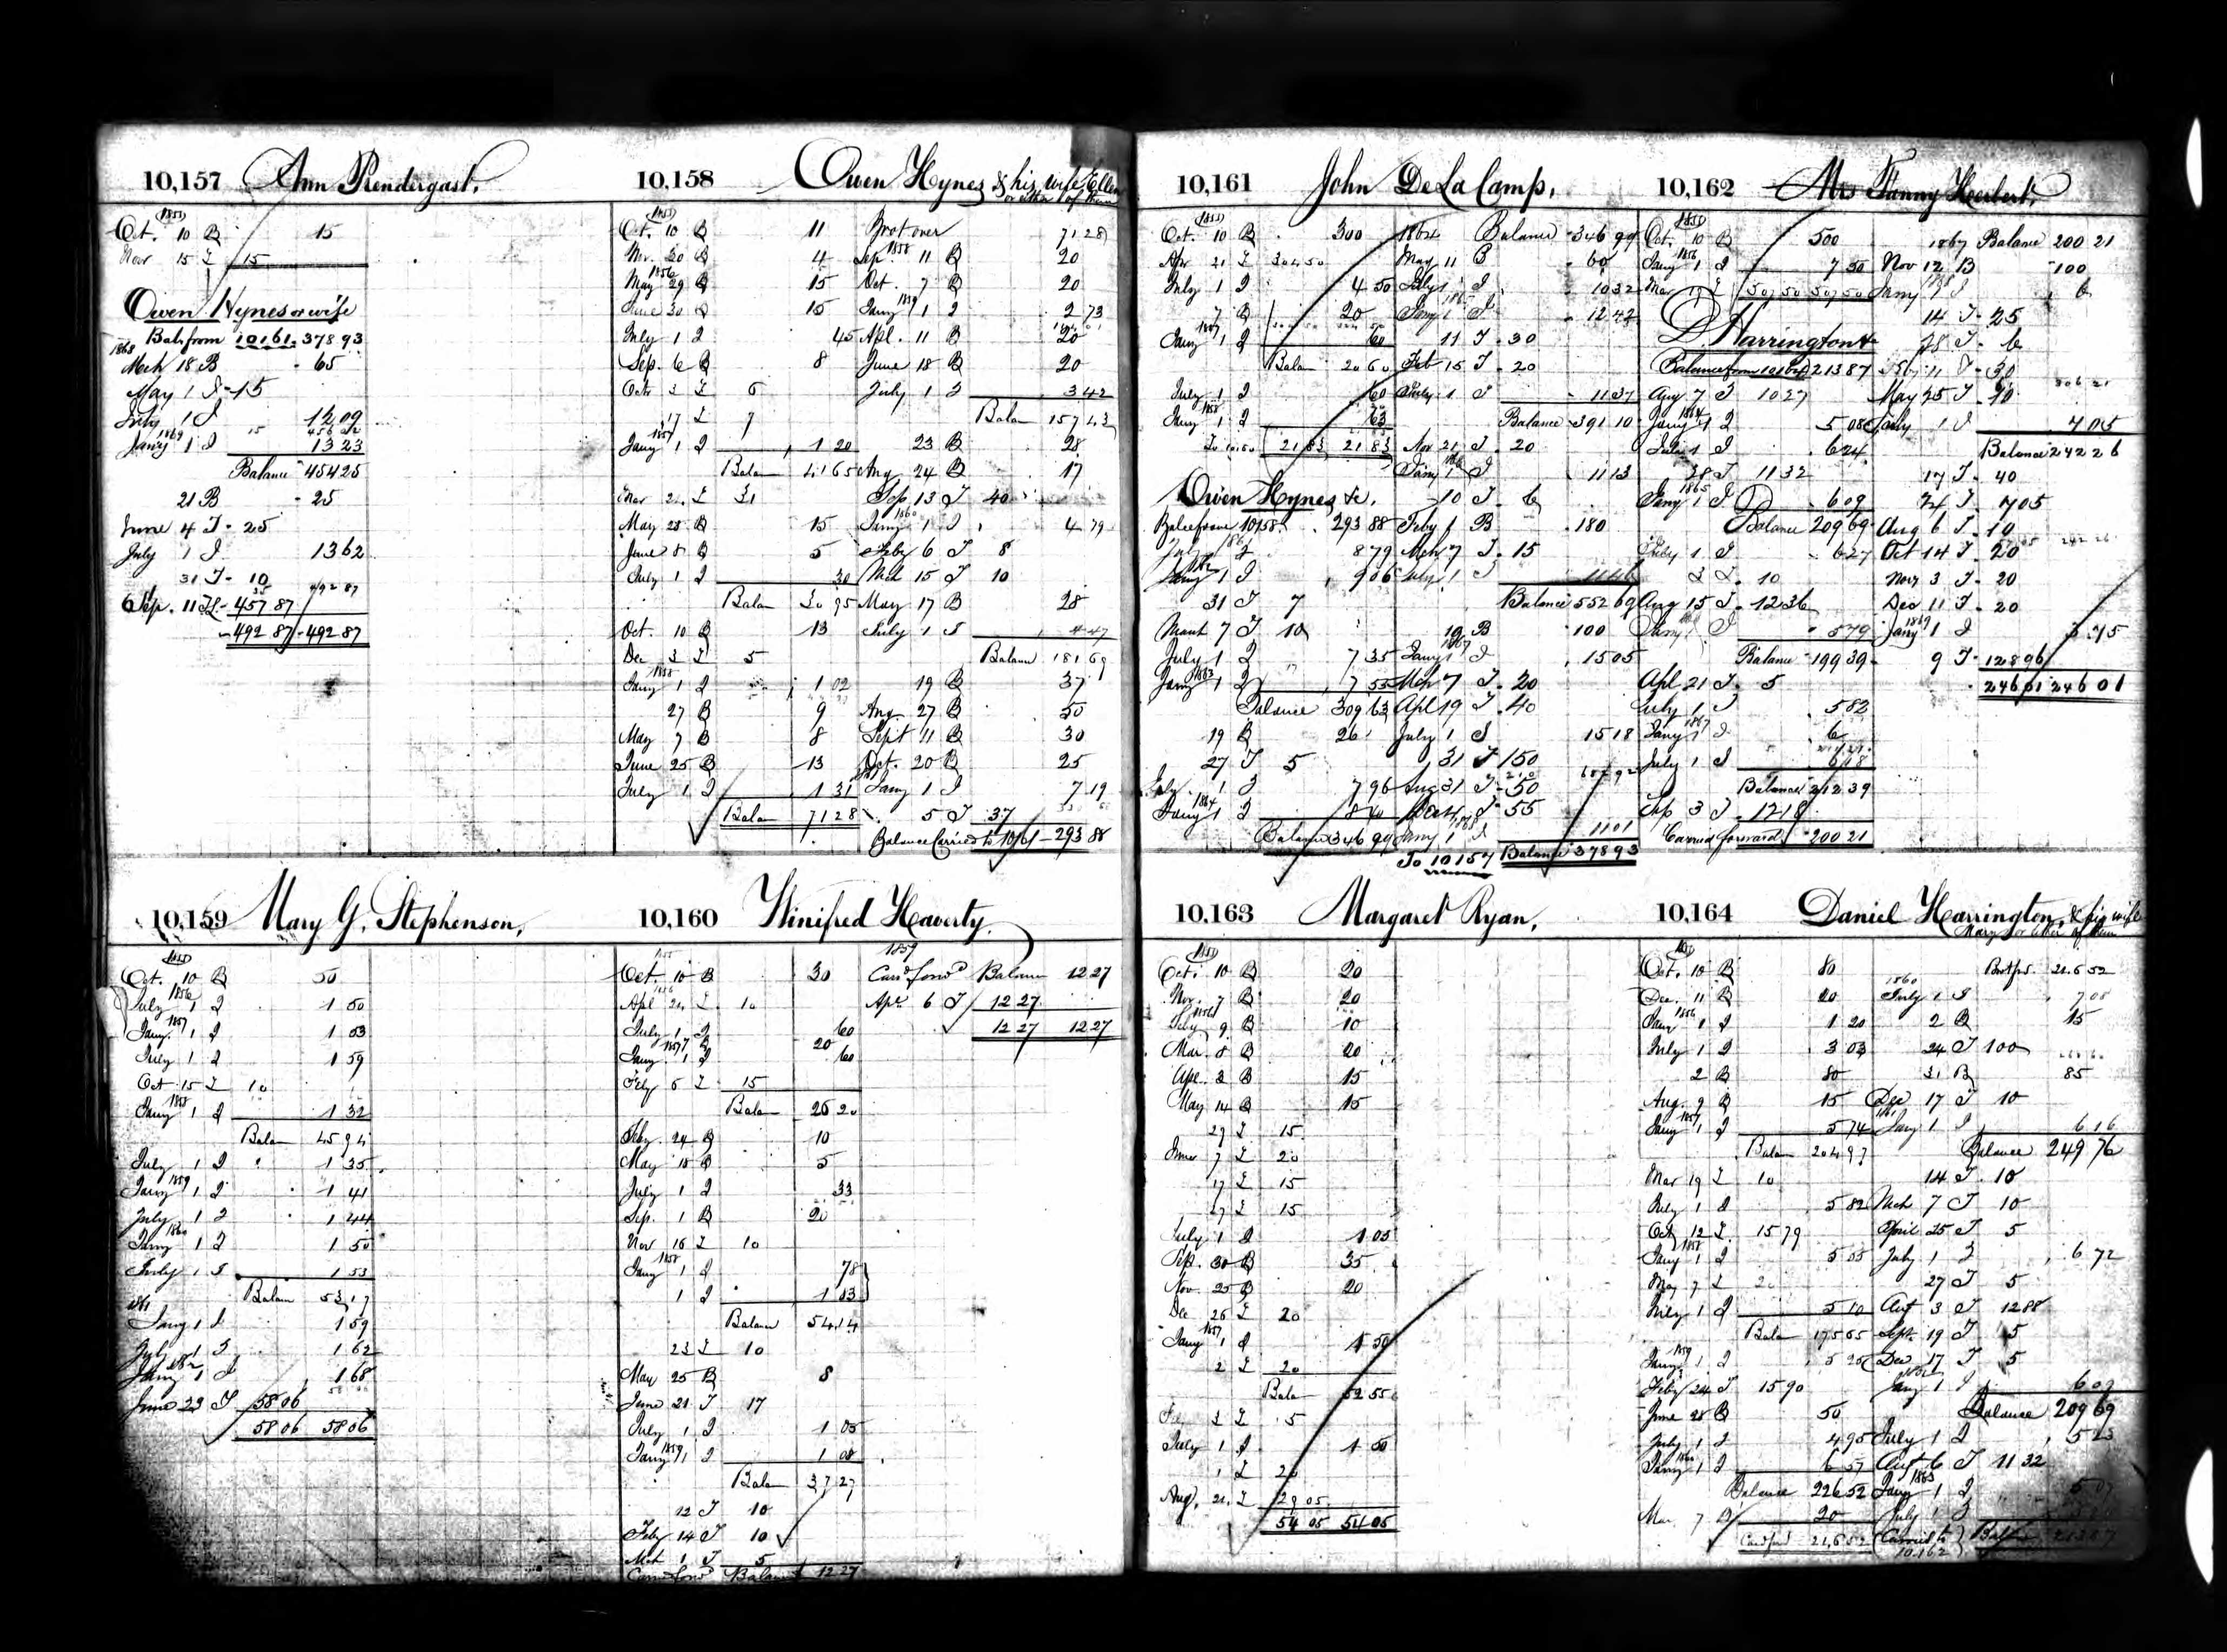 10,157 Ann Prendergast,
1855
Oct. 10 B 15
Nov 15 T 15
Owen Hynes or wife
Bal. from 10161 - 378 93
1868
Mch 18 B - 65
May 1 T - 15
July 1 I 12 09
15 456 02
1869
Jany 1 I 13 23
Balance 454 25
21 B - 25
June 4 T - 25
July 1 I 13 62
31 T - 10
35 492 87
Sep. 11 T - 457 87
492 87 - 492 87
10,158 Owen Hynes & his wife Ellen
or either of them
1855
Oct. 10 B 11
Nov. 20 B 4
1856
May 29 B 15
June 30 B 15
July 1 I 45
Sep. 6 B 8
Octr 3 T 6
17 T 7
1857
Jany 1 I 1 20
Balan 41 65
Mar 21 T 31
May 28 B 15
June 8 B 5
July 1 I 30
Balan 30 95
Oct. 10 B 13
Dec 3 T 5
1858
Jany 1 I 1 02
27 B 9
May 7 B 8
June 25 B 13
July 1 I 1 31
Balan 71 28
Brot over 71 28
1858
Sep. 11 B 20
Oct. 7 B 20
1859
Jany 1 I 2 73
Apl. 11 B 20
June 18 B 20
July 1 I 3 42
Balan 157 43
23 B 28
Aug 24 B 17
Sep 13 T 40
1860
Jany 1 I 4 79
Feby 6 T 8
Mch 15 T 10
May 17 B 28
July 1 I 4 47
Balance 181 69
19 B 37
Aug. 27 B 50
Sept 11 B 30
Oct. 20 B 25
Jany 1 I 7 19
5 T 37
Balance Carried to 10161 - 293 88
10,159 Mary G. Stephenson,
1855
Oct. 10 B 50
1856
July 1 I 1 50
1857
Jany. 1 I 1 53
July 1 I 1 59
Oct 15 T 10
1858
Jany 1 I 1 32
Balan 45 94
July 1 I 1 35
1859
Jany 1 I 1 41
July 1 I 1 44
1860
Jany 1 I 1 50
July 1 I 1 53
Balan 53 17
1861
Jany 1 I 1 59
July 1 I 1 62
1862
Jany 1 I 1 68
June 23 T 58 06
58 06 58 06
10,160 Winifred Haverty.
1855
Oct. 10 B 30
1856
Apl 21 T 10
July 1 I 60
7 B 20
1857
Jany. 1 I 60
Feby 5 T 15
Balan 26 20
Feby. 24 B 10
May 18 B 5
July 1 I 33
Sep. 1 B 20
Nov 16 T 10
1858
Jany 1 I 78
1 I 1 83
Balance 54 14
23 T 10
May 25 B 8
June 21 T 17
July 1 I 1 05
1859
Jany 1 I 1 08
Balan 37 27
12 T 10
Feby 14 T 10
Mch 1 T 5
Card forwd Balance 12 27
1859
Card forwd Balance 12 27
Apr. 6 T 12 27
12 27 12 27
10,161 John De La Camp,
1855
Oct. 10 B 300
Apr 21 T 304 50
July 1 I 4 50
7 B 20
1857
Jany 1 I 60
Balan 20 60
July 1 I 60
1858
Jany 1 I 63
21 83 21 83
Owen Hynes &c.
Bal. from 10158. 293 88
1861
July 1 I 8 79
1862
Jany 1 I 9 06
31 T 7
March 7 T 10
July 1 I 7 35
1863
Jany 1 I 7 55
Balance 309 63
19 B 26
27 T 5
July 1 I 7 96
1864
Jany 1 I 8 40
Balance 346 99
1864 Balance 346 99
May 11 B 60
July 1 I 10 32
1865
Jany 1 I 12 42
11 T - 30
Feb 15 T - 20
July 1 I 11 37
Balance 391 10
Nov 21 T - 20
1866
Jany 1 I 11 13
10 T - 6
Feby 1 B 180
Mch 7 T - 15
July 1 I 11 46
Balance 552 69
19 B 100
1867
Jany 1 I 15 05
Mch 7 T - 20
Apl 19 T - 40
July 1 I 15 18
31 T 150
687 92
Aug 31 T - 50
Dec 4 T - 55
1868
Jany 1 I 11 01
To 10157 Balance 378 93
10,162 Mrs Fanny Herbert,
1855
Oct. 10 B 500
1856
Jany 1 I 7 50
507 50 507 50
D. Harrington &c
Balance from 10164 213 87
Aug 7 T 10 27
1864
Jany 1 I 5 08
July 1 I 6 24
28 T 11 32
1865
Jany 1 I 6 09
Balance 209 69
July 1 I 6 27
3 T - 10
Aug 15 T - 12 36
Jany 1 I 5 79
Balance 199 39
Apl 21 T - 5
July 1 I 5 82
1867
Jany 1 I 6
July 1 I 6 18
Balance 212 39
Sep 3 T - 12 18
Carried forward 200 21
1867 Balance 200 21
Nov 12 B 100
1868
Jany 1 I 6
14 T - 25
28 T - 6
Feby 11 T - 30
306 21
May 25 T - 10
July 1 I 7 05
Balance 242 26
17 T - 40
24 T - 7 05
Aug 6 T - 10
Oct 14 T - 20
Nov 3 T - 20
Dec 11 T - 20
1869
Jany 1 I 3 75
9 T - 128 96
246 01 246 01
10,163 Margaret Ryan,
1855
Oct. 10 B 20
Nov. 7 B 20
1856
Feby 9 B 10
Mar. 8 B 20
Apl. 3 B 15
May 14 B 15
29 T 15
June 7 T 20
17 T 15
27 T 15
July 1 I 1 05
Sep. 30 B 35
Nov. 25 B 20
Dec 26 T 20
1857
Jany 1 I 1 50
2 T 20
Balan 52 55
3 T 5
July 1 I 1 50
1 T 20
Aug. 21 T 29 05
54 05 54 05
10,164 Daniel Harrington, & his wife
Mary or either of them
1855
Oct. 10 B 80
Dec. 11 B 20
1856
Jany 1 I 1 20
July 1 I 3 03
2 B 80
Aug. 9 B 15
1857
Jany 1 I 5 74
Balan 204 97
Mar 19 T 10
July 1 I 5 82
Oct 12 T 15 79
1858
Jany 1 I 5 05
May 7 T 20
July 1 I 5 10
Balan 175 65
1859
Jany 1 I 5 25
Feby 24 T 15 90
June 28 B 50
July 1 I 4 95
1860
Jany 1 I 6 57
Balance 226 52
Mar 7 B 20
Card ford 246 52
Brot fr. 246 52
1860
July 1 I 7 08
2 B 15
24 T 100
31 B 85
Dec 17 T 10
1861
Jany 1 I 6 16
Balance 249 76
14 T 10
Mch 7 T 10
April 25 T 5
July 1 I 6 72
27 T 5
Aug 3 T 12 88
Sept. 19 T 5
Dec 17 T 5
1862
Jany 1 I 6 09
Balance 209 69
July 1 I
Aug 6 T 11 32
1863
Jany 1 I
July 1 I
Carried to 10,162 Balance 213 87